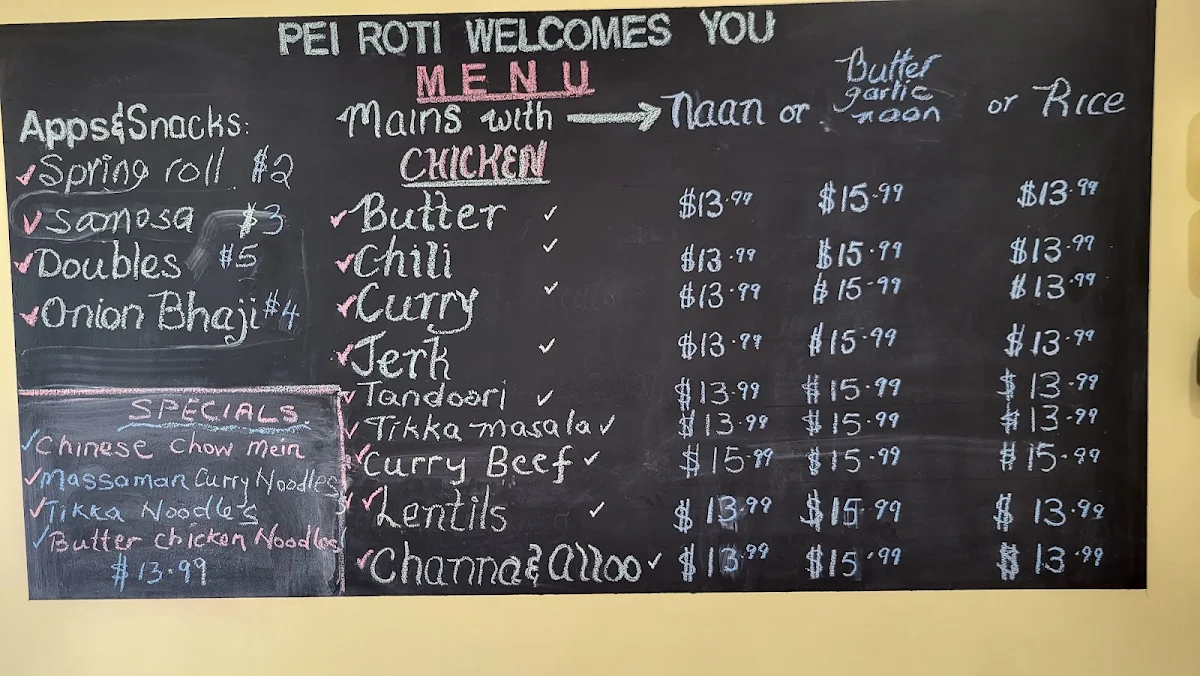 PEI ROTI WELCOMES YOU
MENU
Apps&Snacks:
Spring roll $2
Samosa $3
Doubles $5
Onion Bhaji $4
SPECIALS
Chinese chow mein
Massaman Curry Noodles
Tikka Noodles
Butter chicken Noodles
$13.99
Mains with → Naan or Butter garlic naan or Rice
CHICKEN
Butter ✓ $13.99 $15.99 $13.99
Chili ✓ $13.99 $15.99 $13.99
Curry ✓ $13.99 $15.99 $13.99
Jerk ✓ $13.99 $15.99 $13.99
Tandoori ✓ $13.99 $15.99 $13.99
Tikka masala ✓ $13.99 $15.99 $13.99
Curry Beef ✓ $15.99 $15.99 $15.99
Lentils ✓ $13.99 $15.99 $13.99
Channa & alloo ✓ $13.99 $15.99 $13.99